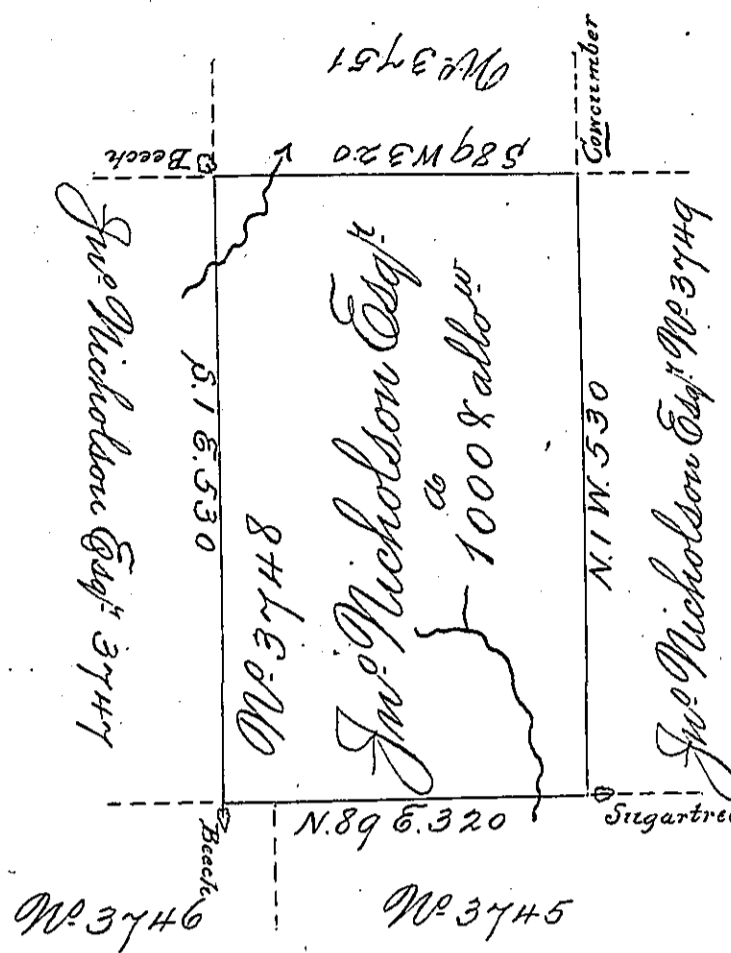 No. 3751
S 89 W 320
Beech
Cowcumber
Jno. Nicholson Esqr. 3747
S. 1 E. 530
No. 3748
Jno. Nicholson Esqr.
a
1000 & allow
N. 1 W. 530
Jno. Nicholson Esqr. No. 3749
N. 89 E. 320
Beech
Sugartree
No. 3746
No. 3745